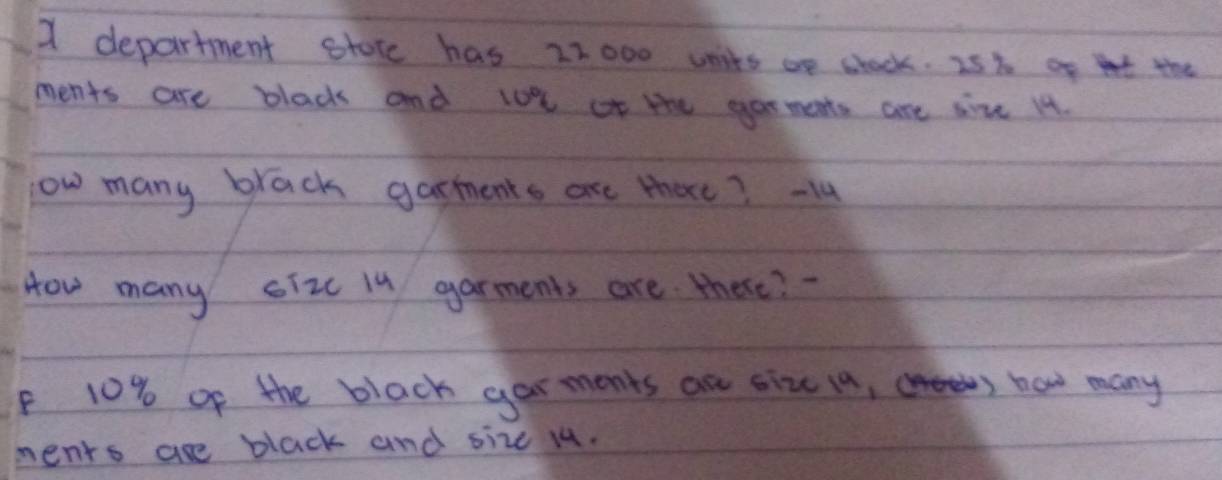 I department store has 22 000 units of stock. 25% of the
ments are black and 10% of the garments are size 14.
ow many black garments are there? -14
How many size 14 garments are there? -
F 10% of the black garments are size 14, how many
ments are black and size 14.